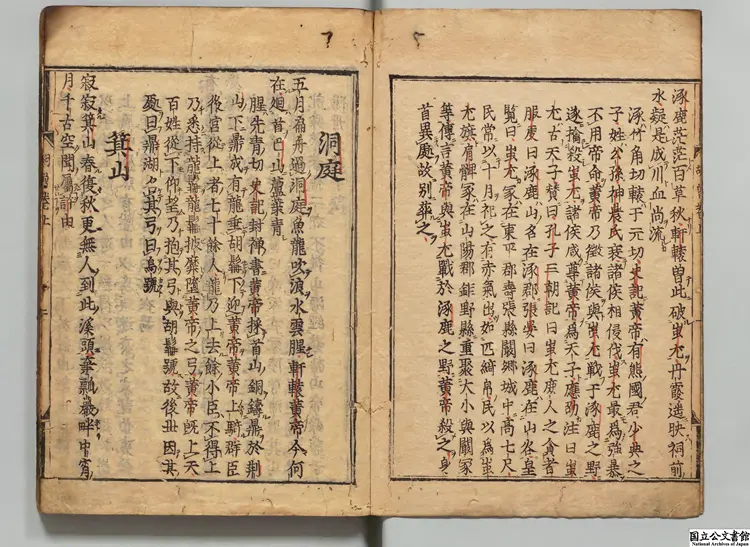 涿鹿茫茫百草秋軒轅曽此破蚩尤丹霞遥映祠前
水疑是成川血尚流
涿竹角切轅于元切史記黄帝有熊國君少典之
子姓公孫神農氏衰諸侯相侵伐蚩尤最爲強暴
不用帝命黄帝乃徵諸侯與蚩尤戰于涿鹿之野
遂擒殺蚩尤諸侯咸尊黄帝爲天子應劭注曰蚩
尤古天子賛曰孔子三朝記曰蚩尤庶人之貪者
服虔曰涿鹿山名在涿郡張晏曰涿鹿在山谷皇
覧曰蚩尤冢在東平郡壽張縣闞郷城中高七尺
民常以十月祀之有赤氣出如匹絳帛民以爲蚩
尤旗肩髀冢在山陽郡鉅野縣重聚大小與闞冢
等傳言黄帝與蚩尤戰於涿鹿之野黄帝殺之身
首異處故别葬之
洞庭
五月扁舟過洞庭魚龍吹浪水雲腥軒轅黄帝今何
在廻首巴山蘆葉青
腥先青切史記封禅書黄帝採首山銅鑄鼎於荆
山下鼎成有龍垂胡髯下迎黄帝黄帝上騎群臣
後宮從上者七十餘人龍乃上去餘小臣不得上
乃悉持龍髯龍髯抜墮墮黄帝之弓黄帝既上天
百姓從下仰望乃抱其弓與胡髯號故後世因其
處曰鼎湖名其弓曰烏號
箕山
寂寂箕山春復秋更無人到此溪頭棄瓢巌畔中宵
月千古空聞屬許由
国立公文書館
National Archives of Japan